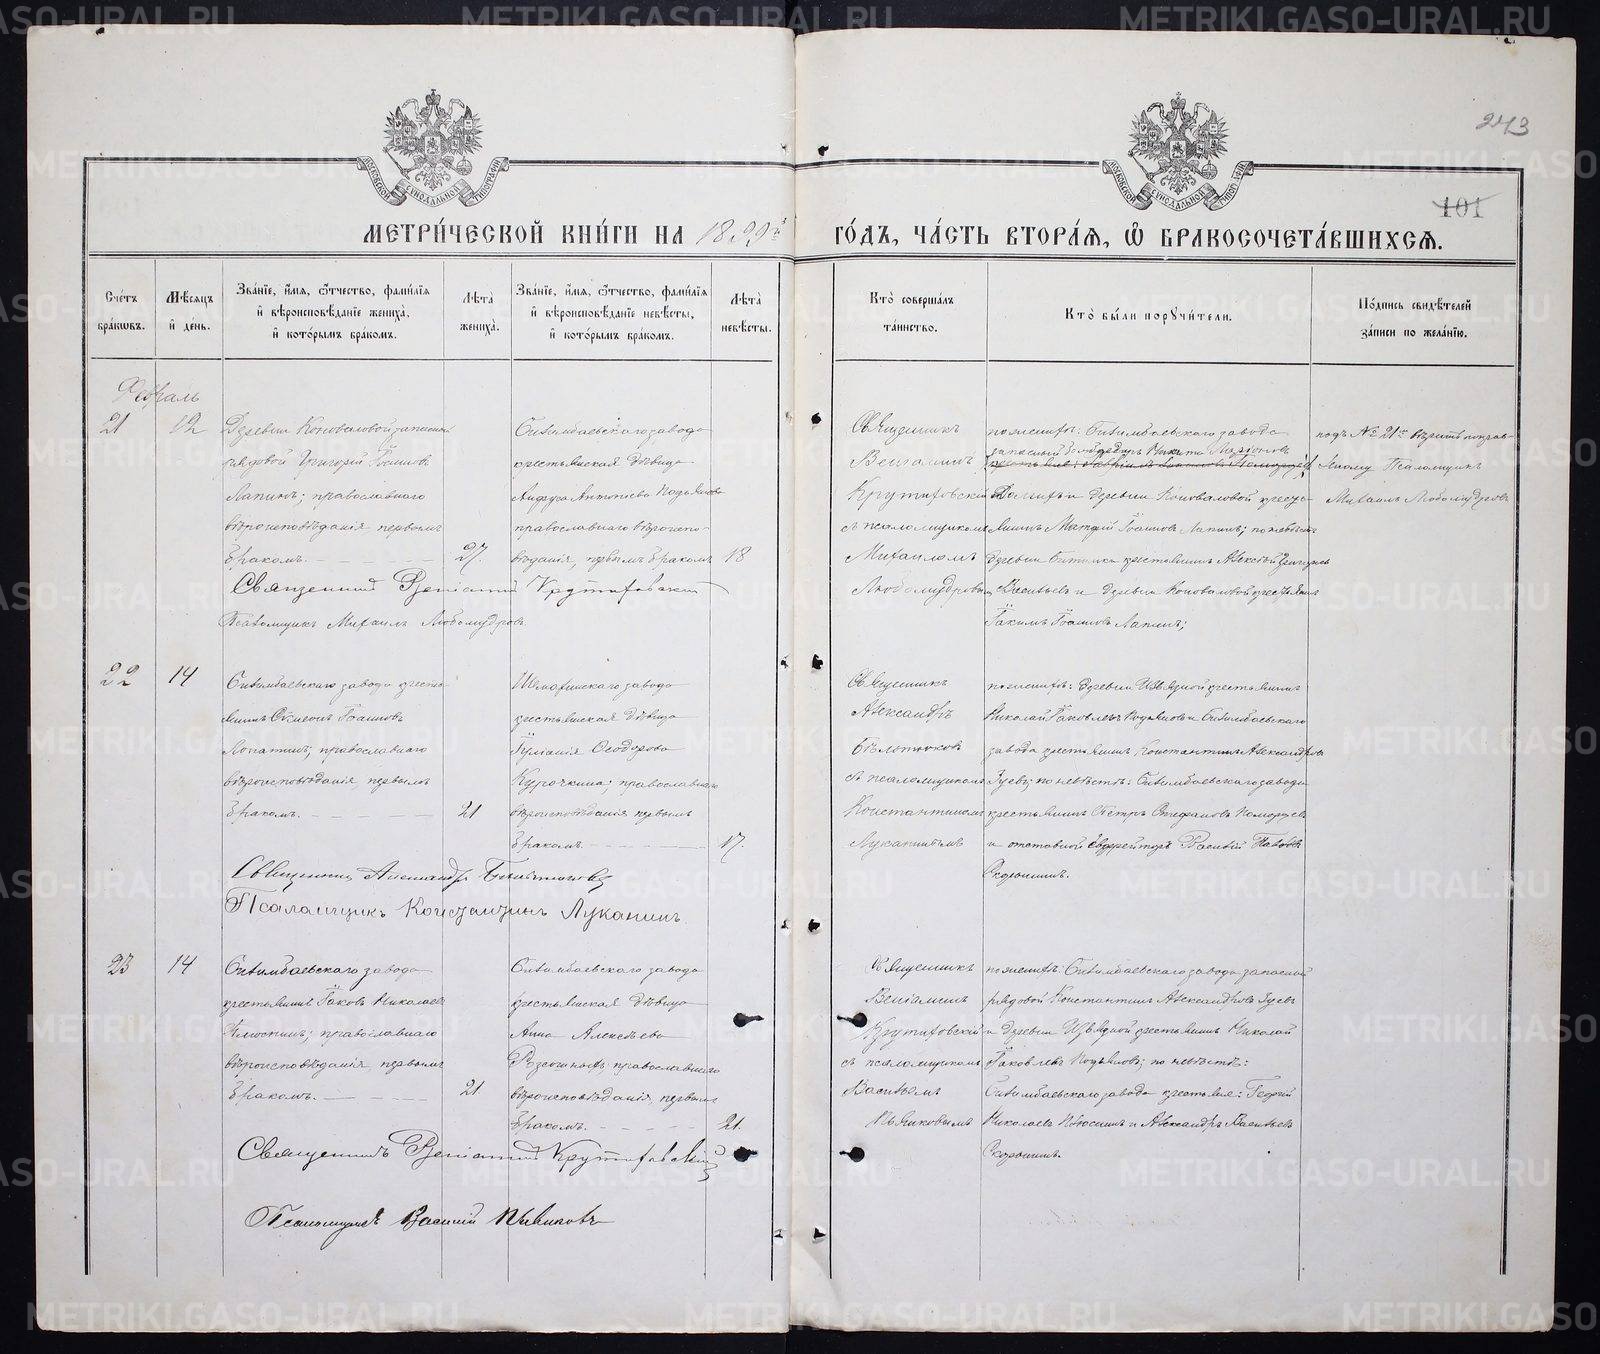 243
101
МОСКОВСКОЙ СѴНОДАЛЬНОЙ ТИПОГРАФІИ
МОСКОВСКОЙ СѴНОДАЛЬНОЙ ТИПОГРАФІИ
МЕТРИЧЕСКОЙ КНИГИ НА 1899й ГОДЪ, ЧАСТЬ ВТОРАЯ, Ѡ БРАКОСОЧЕТАВШИХСЯ.
Счетъ браковъ.
Мѣсяцъ и день.
Званіе, имя, отчество, фамилія и вѣроисповѣданіе жениха, и которымъ бракомъ.
Лѣта жениха.
Званіе, имя, отчество, фамилія и вѣроисповѣданіе невѣсты, и которымъ бракомъ.
Лѣта невѣсты.
Кто совершалъ таинство.
Кто были поручители.
Подпись свидѣтелей записи по желанію.
Февраль
21
12
Деревни Коноваловой запасной
рядовой Григорій Іоанновъ
Лапинъ; православнаго
вѣроисповѣданія первымъ
бракомъ.
27.
Билимбаевскаго завода
крестьянская дѣвица
православнаго вѣроиспо-
вѣданія, первымъ бракомъ
18
Священникъ
Веніаминъ
Крутиховскій
съ псаломщикомъ
Михаиломъ
Любомудровымъ
по женихѣ: Билимбаевскаго завода
запасный бомбардиръ Никита Ларіоновъ
и деревни Коноваловой кресть-
янинъ Матфій Іоанновъ Лапинъ; по невѣстѣ:
деревни Битимки крестьянинъ Алексѣй Григорьевъ
Васильевъ и деревни Коноваловой крестьянинъ
Іакимъ Іоанновъ Лапинъ;
подъ № 21м вѣрить поправ-
ленному Псаломщикъ
Михаилъ Любомудровъ
Священникъ Веніаминъ Крутиховскій
Псаломщикъ Михаилъ Любомудровъ
22
14
Билимбаевскаго завода кресть-
янинъ Симеонъ Іоанновъ
Лопатинъ; православнаго
вѣроисповѣданія, первымъ
бракомъ.
21
Шемахинскаго завода
крестьянская дѣвица
Іуліанія Ѳеодорова
Курочкина; православнаго
вѣроисповѣданія первымъ
бракомъ.
17.
Священникъ
Александръ
съ псаломщикомъ
Константиномъ
Луканинымъ
по женихѣ: деревни Извѣздной крестьянинъ
Николай Іаковлевъ Подъяновъ и Билимбаевскаго
завода крестьянинъ Константинъ Александровъ
Зуевъ; по невѣстѣ: Билимбаевскаго завода
крестьянинъ Петръ Стефановъ Поморцевъ
и отставной ефрейторъ Василій Павловъ
Скорынинъ.
Священникъ Александръ
Псаломщикъ Константинъ Луканинъ
23
14
Билимбаевскаго завода
крестьянинъ Іаковъ Николаевъ
православнаго
вѣроисповѣданія, первымъ
бракомъ.
21.
Билимбаевскаго завода
крестьянская дѣвица
Анна Алексѣева
православнаго
вѣроисповѣданія, первымъ
бракомъ.
21.
Священникъ
Веніаминъ
Крутиховскій
съ псаломщикомъ
Василіемъ
Пьянковымъ
по женихѣ: Билимбаевскаго завода запасный
рядовой Константинъ Александровъ Зуевъ
и деревни Извѣздной крестьянинъ Николай
Іаковлевъ Подъяновъ; по невѣстѣ:
Билимбаевскаго завода крестьяне: Георгій
Николаевъ и Александръ Васильевъ
Скорынинъ.
Священникъ Веніаминъ Крутиховскій
Псаломщикъ Василій Пьянковъ
METRIKI.GASO-URAL.RU